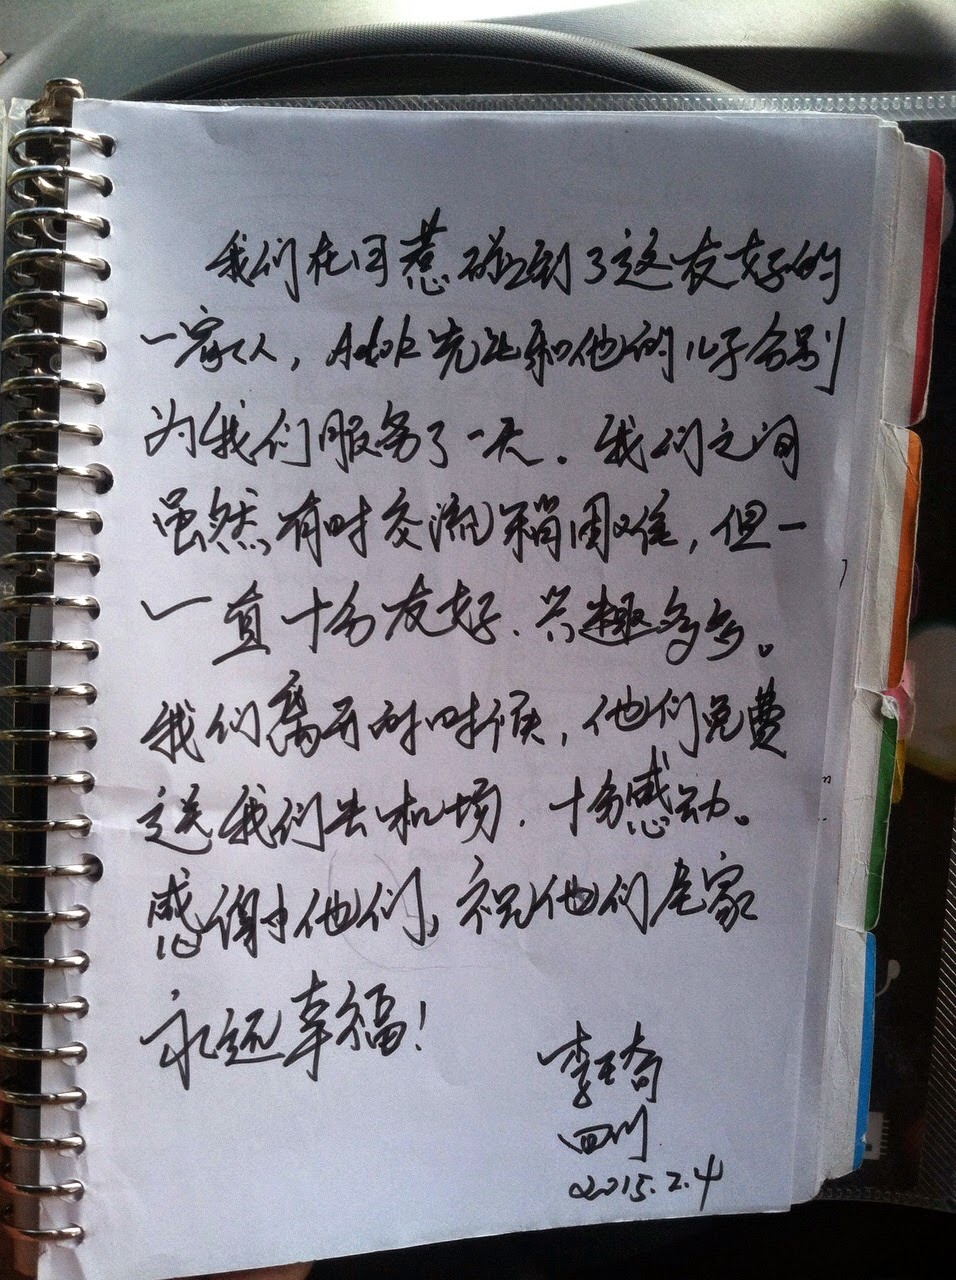 我们在日惹碰到了这友好的
一家人，Adok先生和他的儿子分别
为我们服务了一天。我们之间
虽然有时交流稍困难，但一
一直十分友好、兴趣多多。
我们离开的时候，他们免费
送我们去机场，十分感动。
感谢他们，祝他们全家
永远幸福！
李琦
四川
2015.2.4